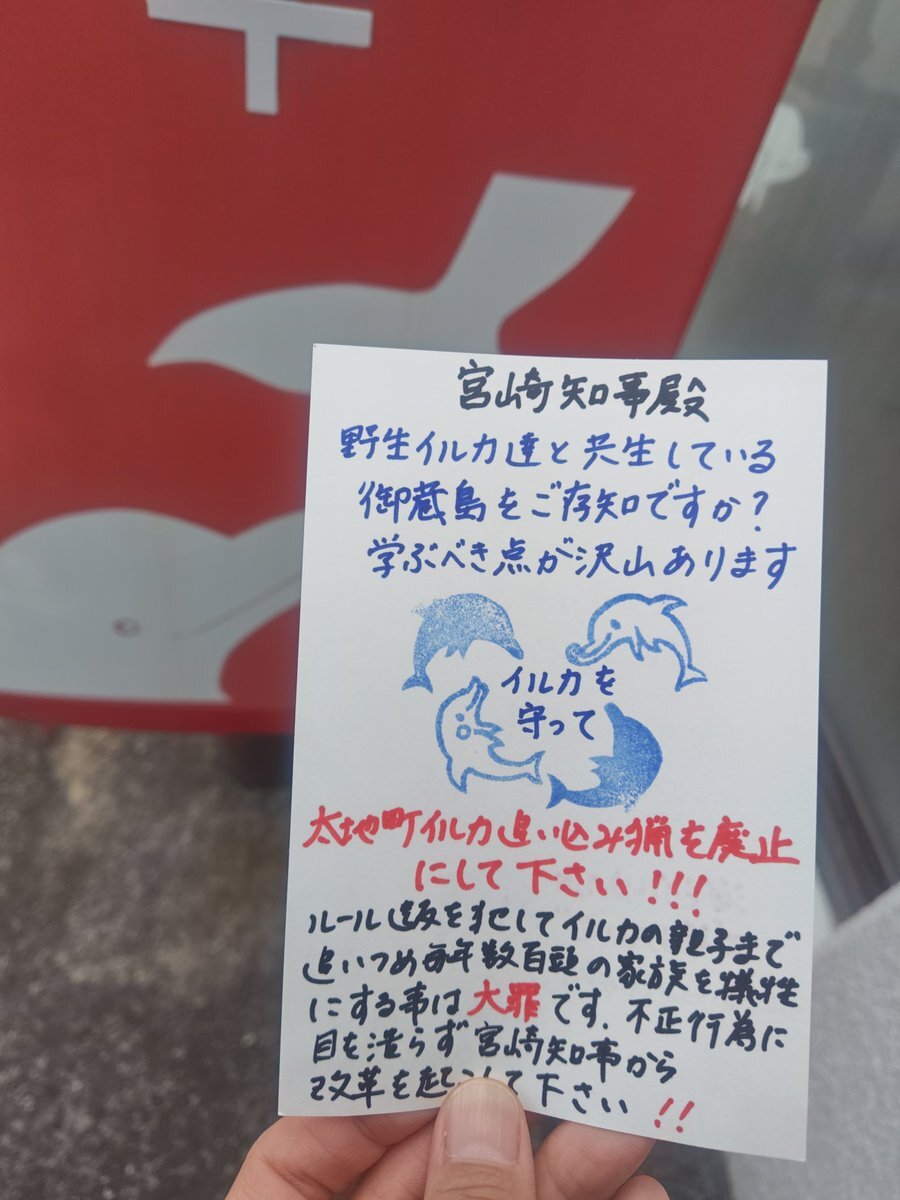 〒
宮崎知事殿
野生イルカ達と共生している
御蔵島をご存知ですか?
学ぶべき点が沢山あります
イルカを
守って
太地町イルカ追い込み猟を廃止
にして下さい!!!
ルール違反を犯してイルカの親子まで
追いつめ毎年数百頭の家族を犠牲
にする事は大罪です.不正行為に
目を瞑らず宮崎知事から
改革を起こして下さい!!